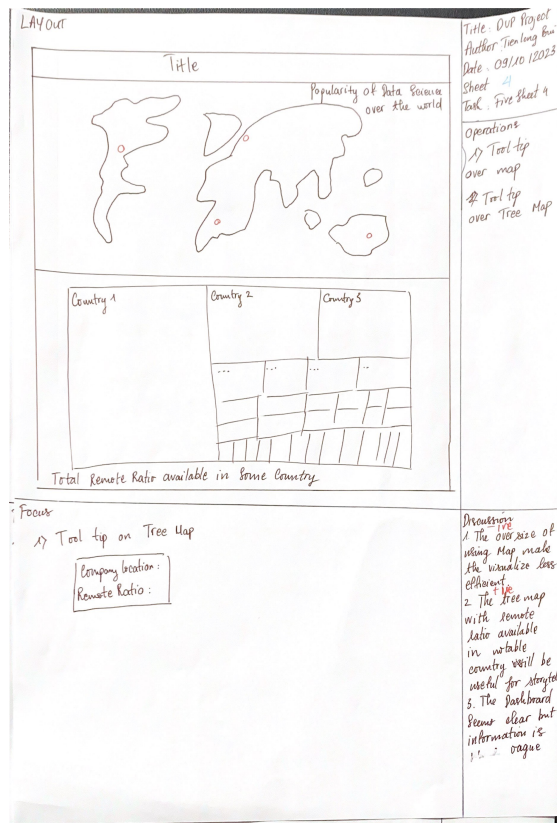 LAYOUT
Title
Popularity of Data Science
over the world
Country 1
Country 2
Country 3
...
...
...
..
Total Remote Ratio available in Some Country
Title: DVP Project
Author: Tien Long Bui
Date: 09/10/2023
Sheet 4
Task: Five Sheet 4
Operations
1) Tool tip
over map
2 Tool tip
over Tree Map
Focus
1) Tool tip on Tree Map
Company location:
Remote Ratio:
Discussion
-ive
1. The over size of
using Map make
the visualize less
efficient
+ive
2. The tree map
with remote
ratio available
in notable
country will be
useful for storytel
3. The Dashboard
Seems clear but
information is
vague